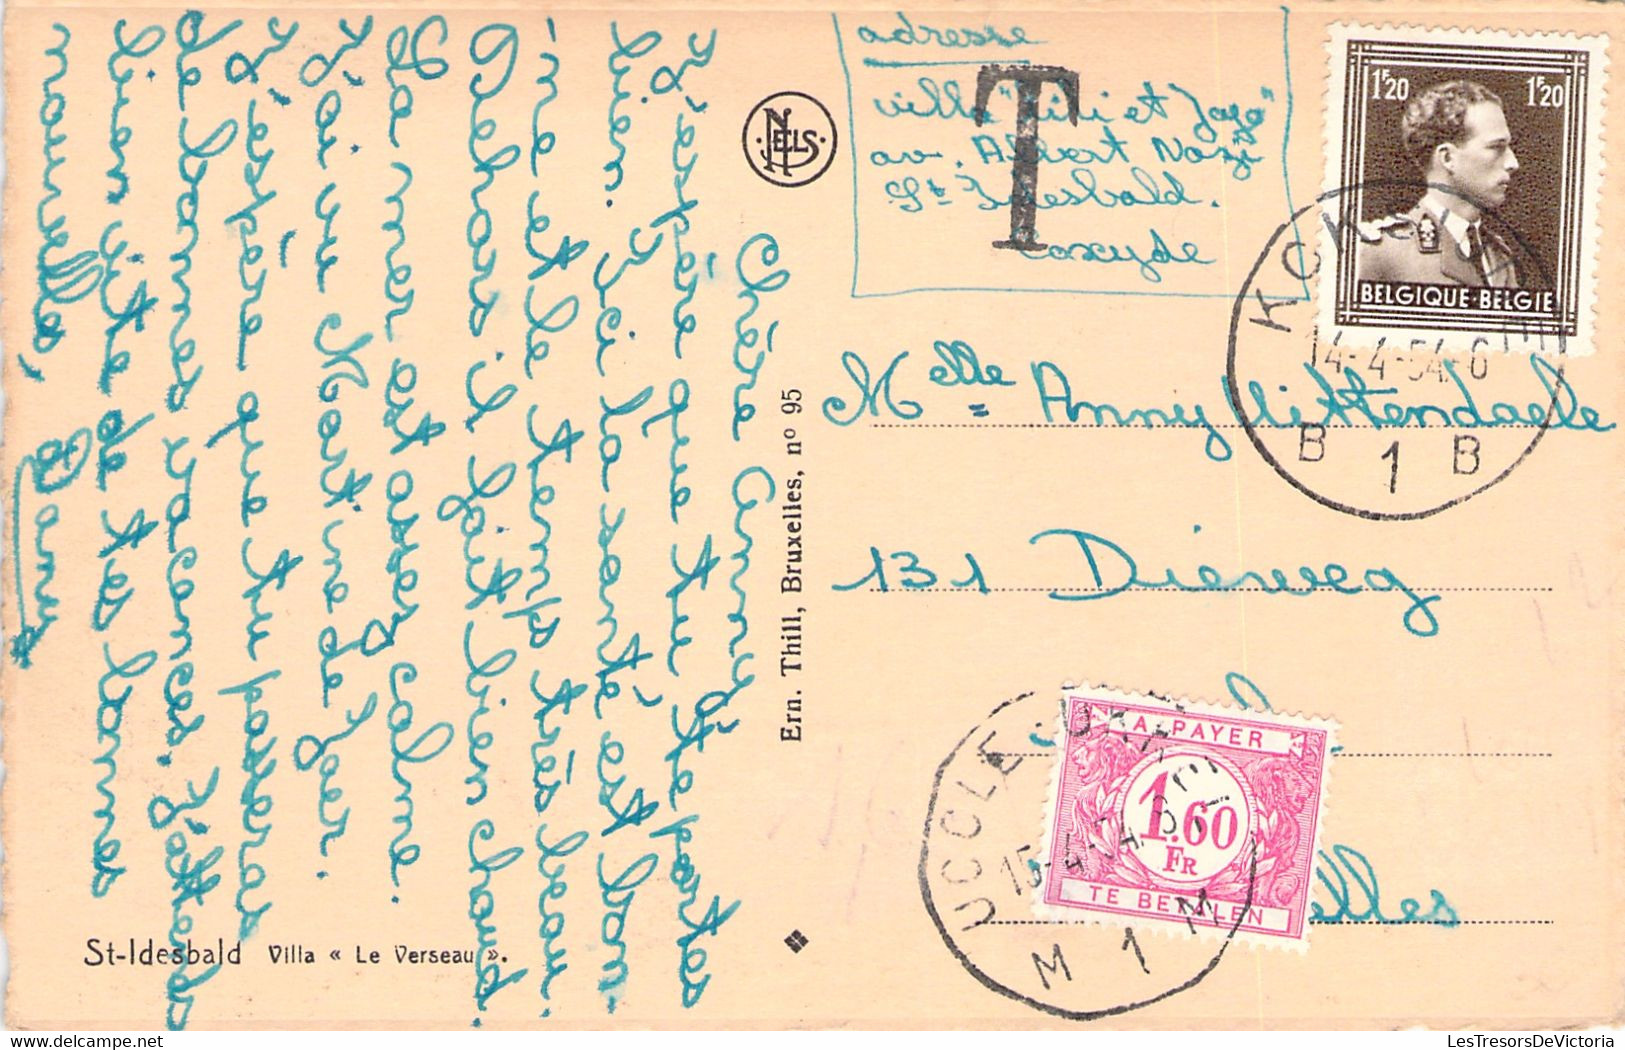 Chère Anny,
J'espère que tu te portes
bien. Ici la santé est bon-
ne et le temps très beau.
Dehors il fait bien chaud.
La mer est assez calme.
J'ai vu Martine de Jaer.
J'espère que tu passeras
de bonnes vacances. J'attends
bien vite de tes bonnes
nouvelles,
St-Idesbald Villa « Le Verseau ».
Ern. Thill, Bruxelles, nº 95
NELS
adresse
villa " et
av. Albert
St Idesbald.
Coxyde
T
1F20 1F20
BELGIQUE-BELGIE
14-4-54 - 6
B 1 B
Melle Anny Uittendaele
131 Dieweg
elles
A PAYER
1.60
FR
TE BETALEN
UCCLE - UKKEL
15-4-54
M 1 M
LesTresorsDeVictoria